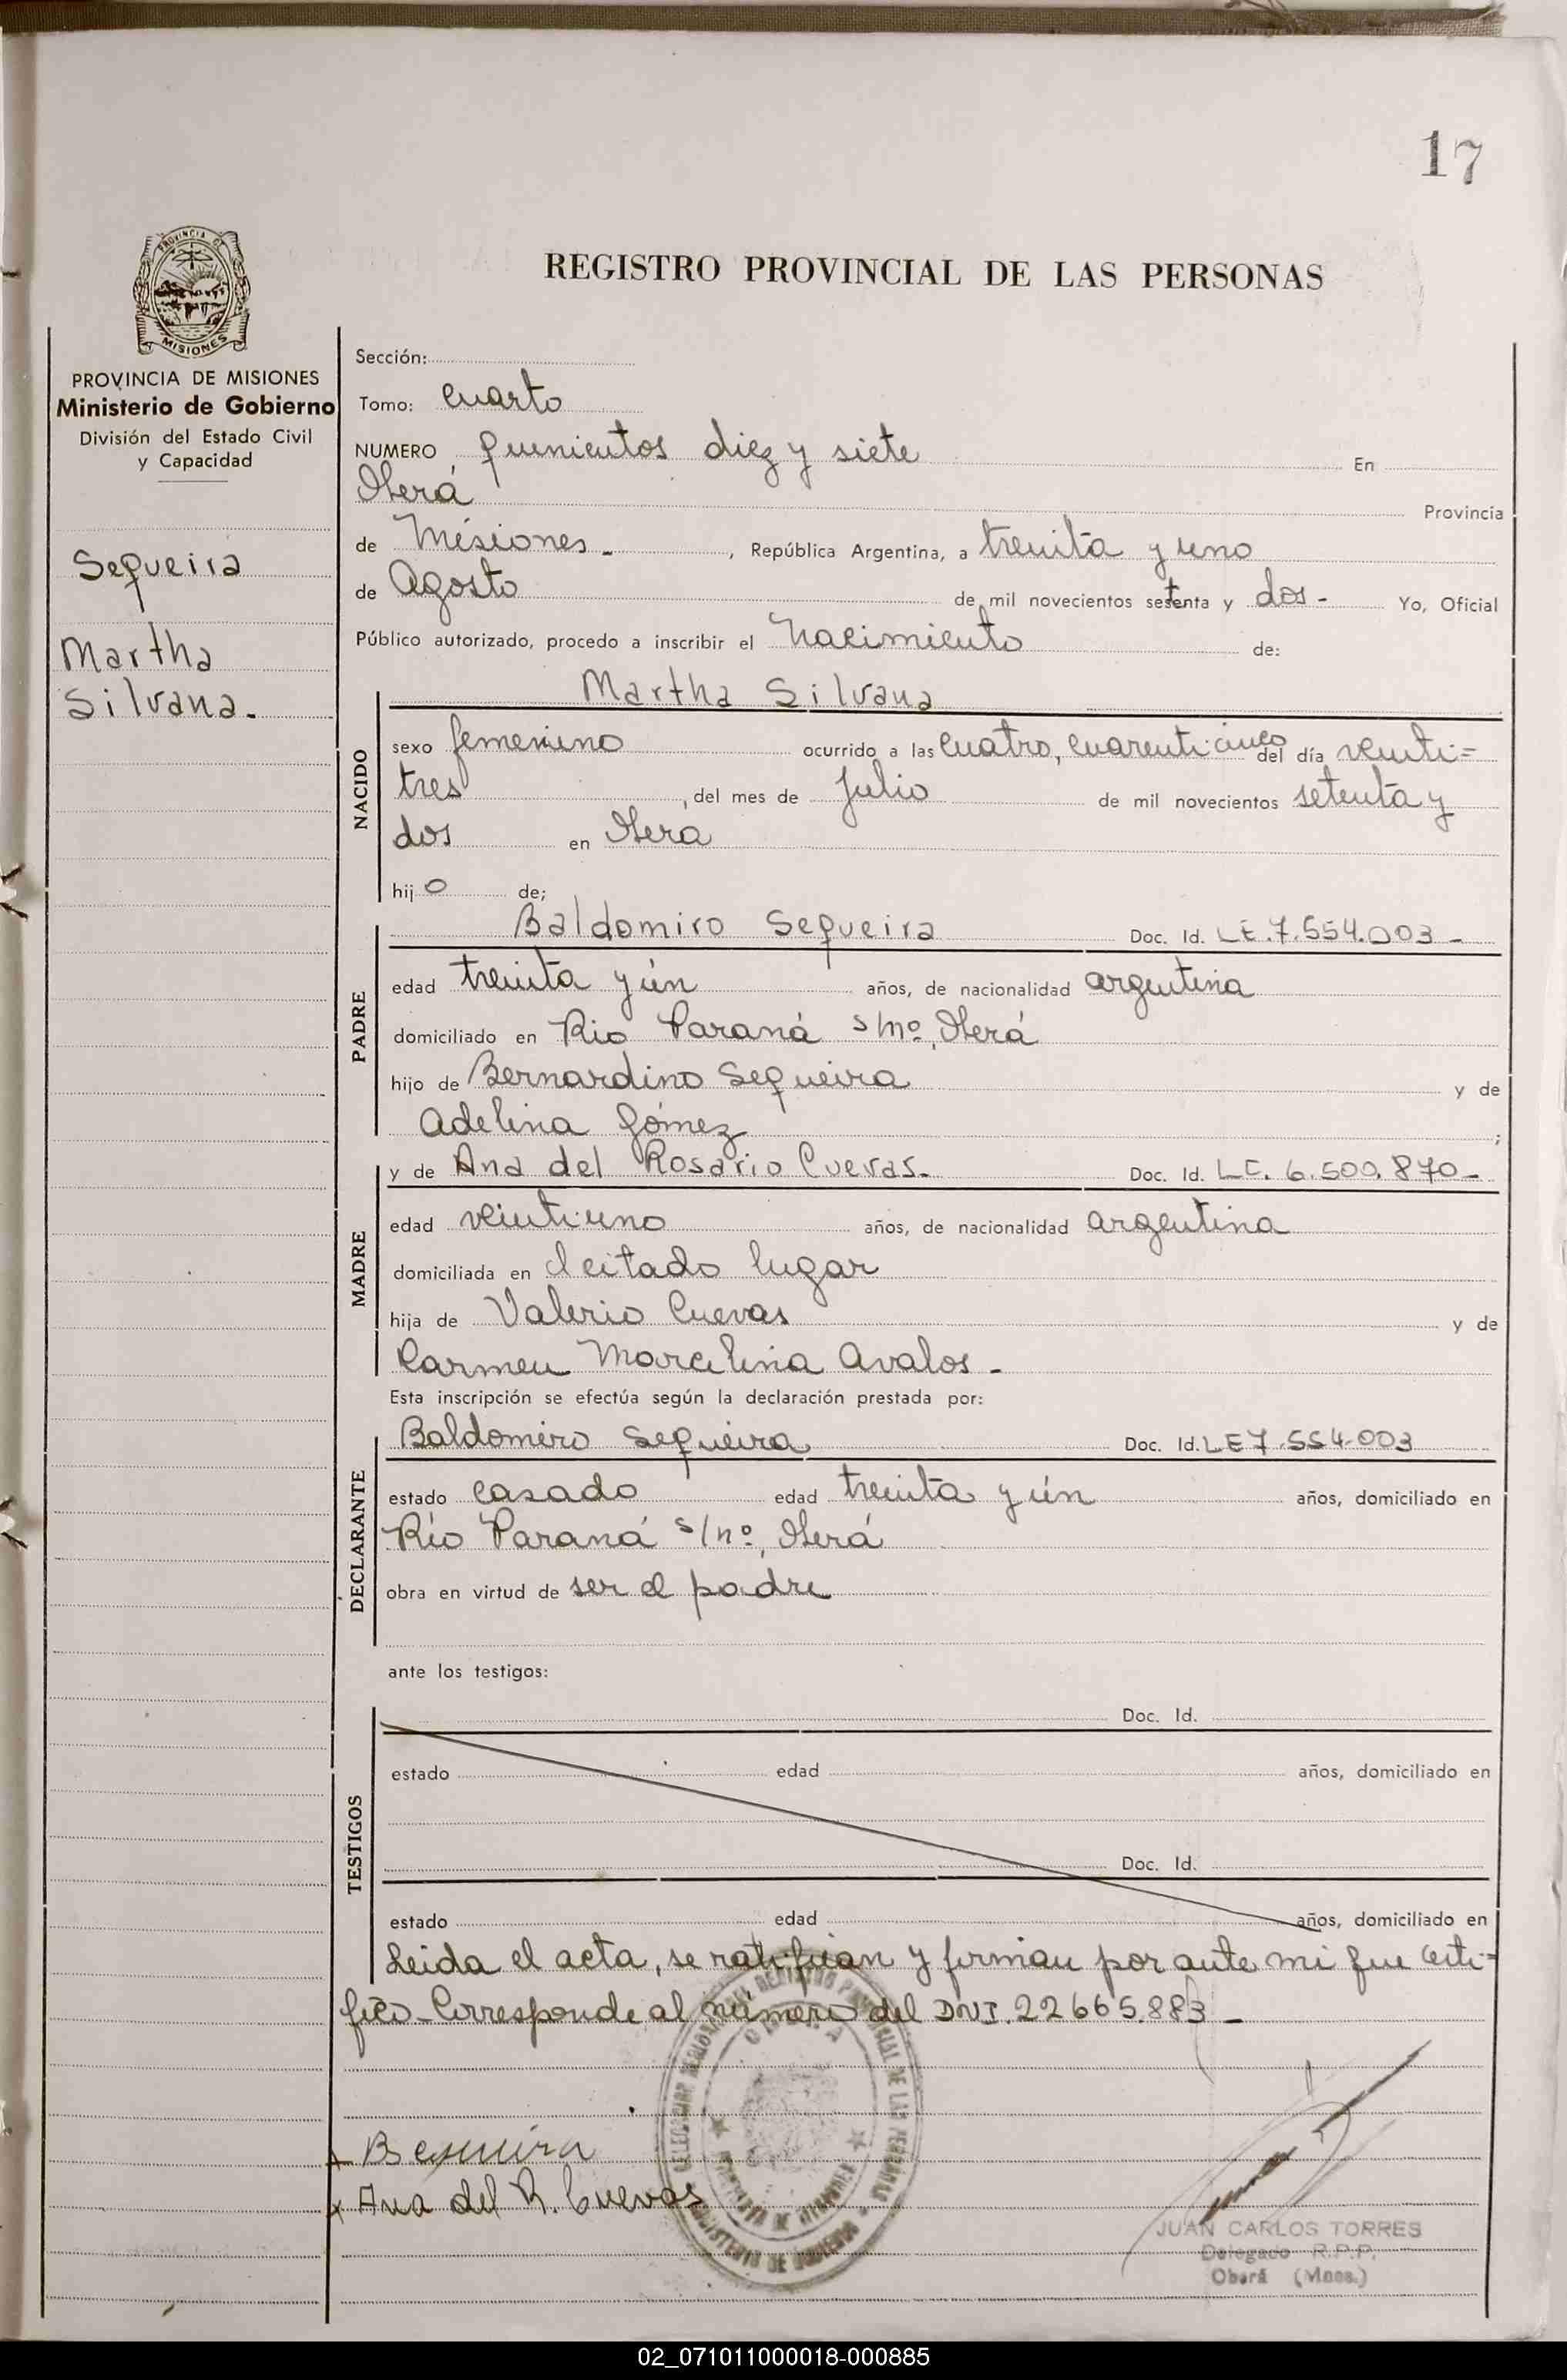 17
PROVINCIA DE
MISIONES
REGISTRO PROVINCIAL DE LAS PERSONAS
PROVINCIA DE MISIONES
Ministerio de Gobierno
División del Estado Civil
y Capacidad
Sequeira
Martha
Silvana.
Sección:
Tomo: Cuarto
NUMERO quinientos diez y siete En
Oberá Provincia
de Misiones - , República Argentina, a treinta y uno
de Agosto de mil novecientos setenta y dos - Yo, Oficial
Público autorizado, procedo a inscribir el Nacimiento de:
Martha Silvana
NACIDO
sexo femenino ocurrido a las cuatro, cuarenticinco del día veinti=
tres , del mes de Julio de mil novecientos setenta y
dos en Obera
hij o de;
Baldomiro Sequeira Doc. Id. LE.7.554.003 -
PADRE
edad treinta y ún años, de nacionalidad argentina
domiciliado en Rio Paraná s/nº, Oberá
hijo de Bernardino Sequeira y de
Adelina Gómez ;
y de Ana del Rosario Cuevas. Doc. Id. LC. 6.500.870 -
MADRE
edad veintiuno años, de nacionalidad argentina
domiciliada en el citado lugar
hija de Valerio Cuevas y de
Carmen Marcelina Avalos -
Esta inscripción se efectúa según la declaración prestada por:
Baldomiro Sequeira Doc. Id. LE 7.554.003
DECLARANTE
estado casado edad treinta y ún años, domiciliado en
Río Paraná s/nº, Oberá
obra en virtud de ser el padre
ante los testigos:
Doc. Id.
TESTIGOS
estado edad años, domiciliado en
Doc. Id.
estado edad años, domiciliado en
Leida el acta, se ratifican y firman por ante mi que certi=
fico - Corresponde al número del DNI. 22665.883 -
x Ana del R. Cuevas
JUAN CARLOS TORRES
Delegado R.P.P.
Oberá (Mnes.)
02_071011000018-000885